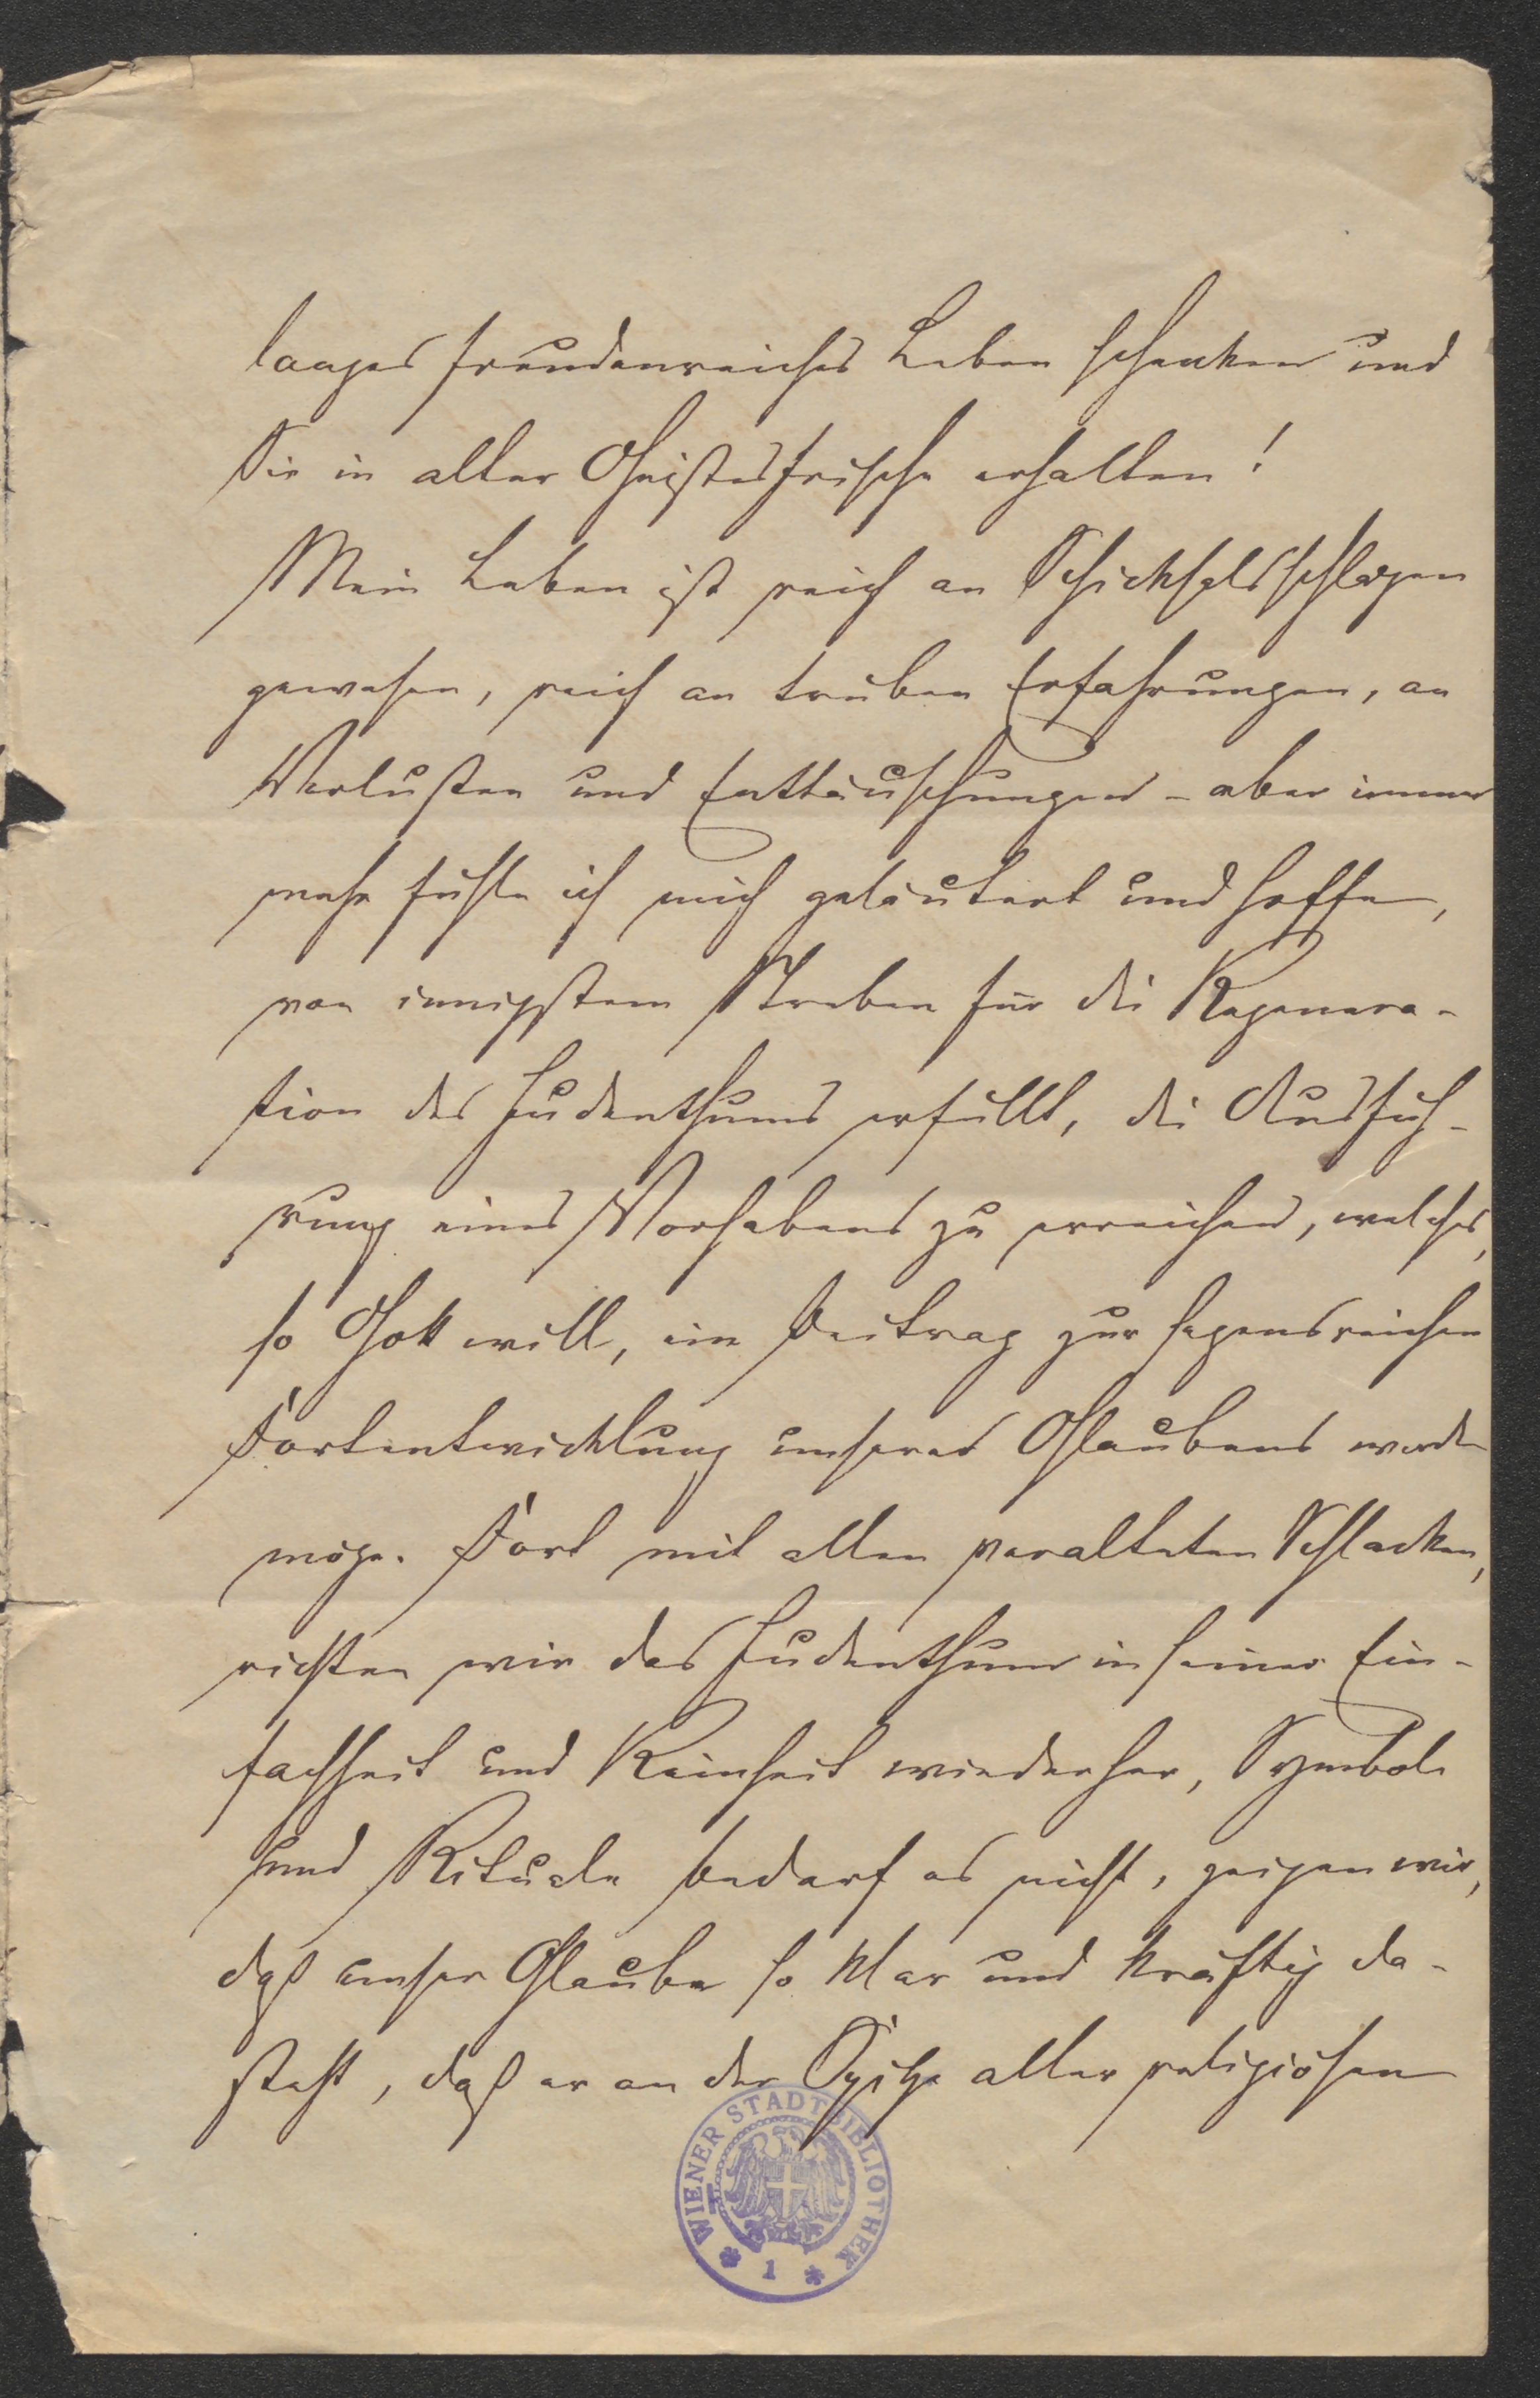 langes freudenreiches Leben schenken und
Sie in alter Geistesfrische erhalten!
Mein Leben ist reich an Schicksalsschlägen
gewesen, reich an trüben Erfahrungen, an
Verlusten und Enttäuschungen – aber immer
mehr fühle ich mich geläutert und hoffe,
von innigstem Streben für die Regenera-
tion des Judenthums erfüllt, die Ausfüh-
rung eines Vorhabens zu erreichen, welches,
so Gott will, ein Beitrag zur segensreichen
Fortentwicklung unseres Glaubens werden
möge. Fort mit allen veralteten Schlacken,
richten wir das Judenthum in seiner Ein-
fachheit und Reinheit wieder her, Symbole
und Rituale bedarf es nicht, zeigen wir,
daß unser Glaube so klar und kräftig da-
steht, daß er an der Spitze aller religiösen
WIENER STADTBIBLIOTHEK
* 1 *